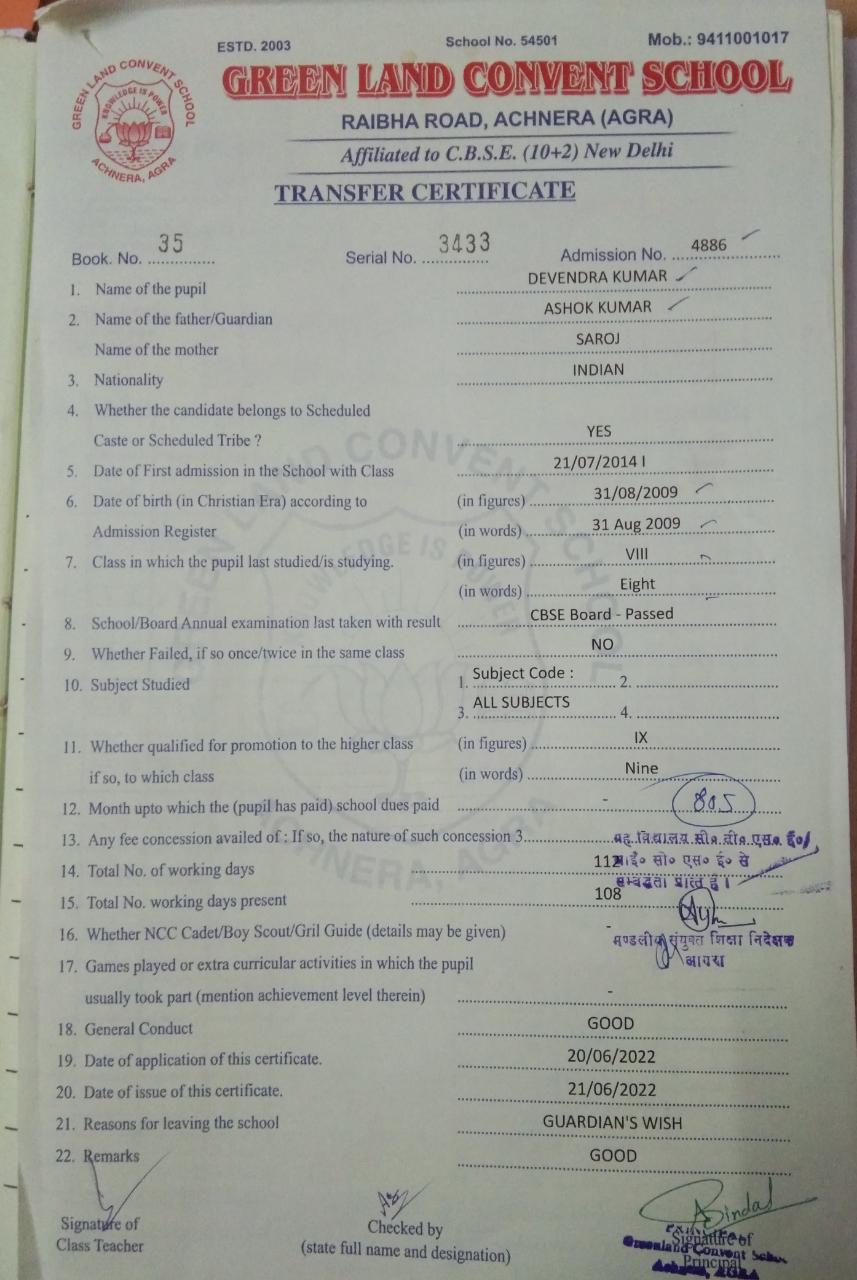 ESTD. 2003 School No. 54501 Mob.: 9411001017
GREEN LAND CONVENT SCHOOL
GREEN LAND CONVENT SCHOOL
KNOWLEDGE IS POWER
ACHNERA, AGRA
RAIBHA ROAD, ACHNERA (AGRA)
Affiliated to C.B.S.E. (10+2) New Delhi
TRANSFER CERTIFICATE
Book. No. 35 Serial No. 3433 Admission No. 4886
1. Name of the pupil DEVENDRA KUMAR
2. Name of the father/Guardian ASHOK KUMAR
Name of the mother SAROJ
3. Nationality INDIAN
4. Whether the candidate belongs to Scheduled
Caste or Scheduled Tribe ? YES
5. Date of First admission in the School with Class 21/07/2014 I
6. Date of birth (in Christian Era) according to (in figures) 31/08/2009
Admission Register (in words) 31 Aug 2009
7. Class in which the pupil last studied/is studying. (in figures) VIII
(in words) Eight
8. School/Board Annual examination last taken with result CBSE Board - Passed
9. Whether Failed, if so once/twice in the same class NO
10. Subject Studied 1. Subject Code : 2.
3. ALL SUBJECTS 4.
11. Whether qualified for promotion to the higher class (in figures) IX
if so, to which class (in words) Nine
12. Month upto which the (pupil has paid) school dues paid - 805
13. Any fee concession availed of : If so, the nature of such concession 3
यह विद्यालय सी० बी० एस० ई०/
14. Total No. of working days 112
आई० सी० एस० ई० से
सम्बद्धता प्राप्त है।
15. Total No. working days present 108
16. Whether NCC Cadet/Boy Scout/Gril Guide (details may be given) -
मण्डलीय संयुक्त शिक्षा निदेशक
आगरा
17. Games played or extra curricular activities in which the pupil
usually took part (mention achievement level therein) -
18. General Conduct GOOD
19. Date of application of this certificate. 20/06/2022
20. Date of issue of this certificate. 21/06/2022
21. Reasons for leaving the school GUARDIAN'S WISH
22. Remarks GOOD
ABindal
Signature of Checked by Signature of
Class Teacher (state full name and designation) Principal
Greenland Convent
AGRA